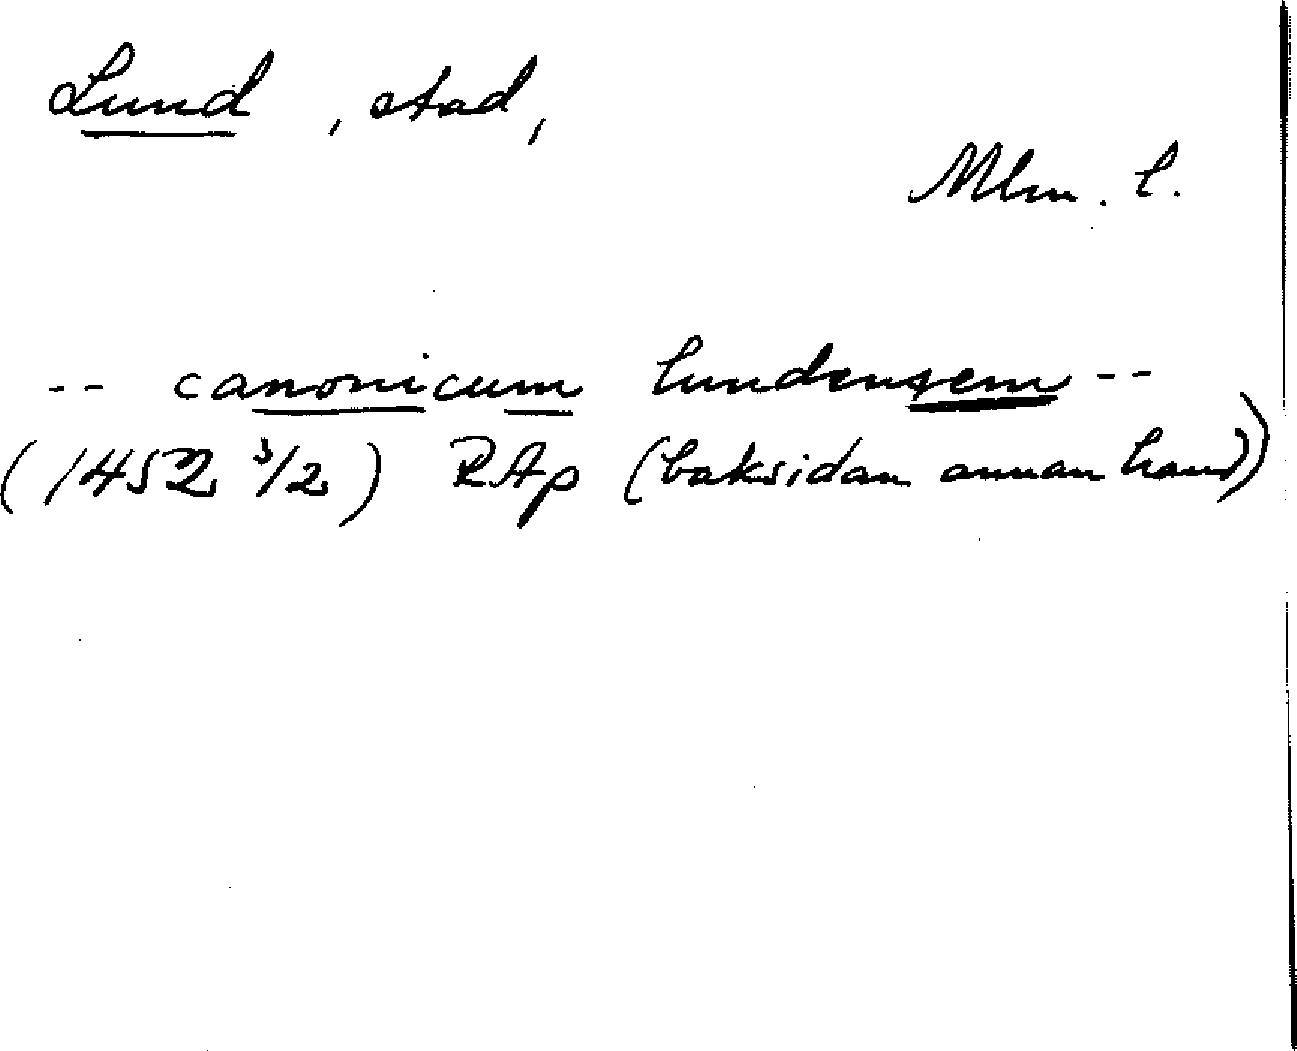 Lund, stad,
Mlm. l.
-- canonicum lundensem --
(1452 3/2) RAp (baksidan annan hand)